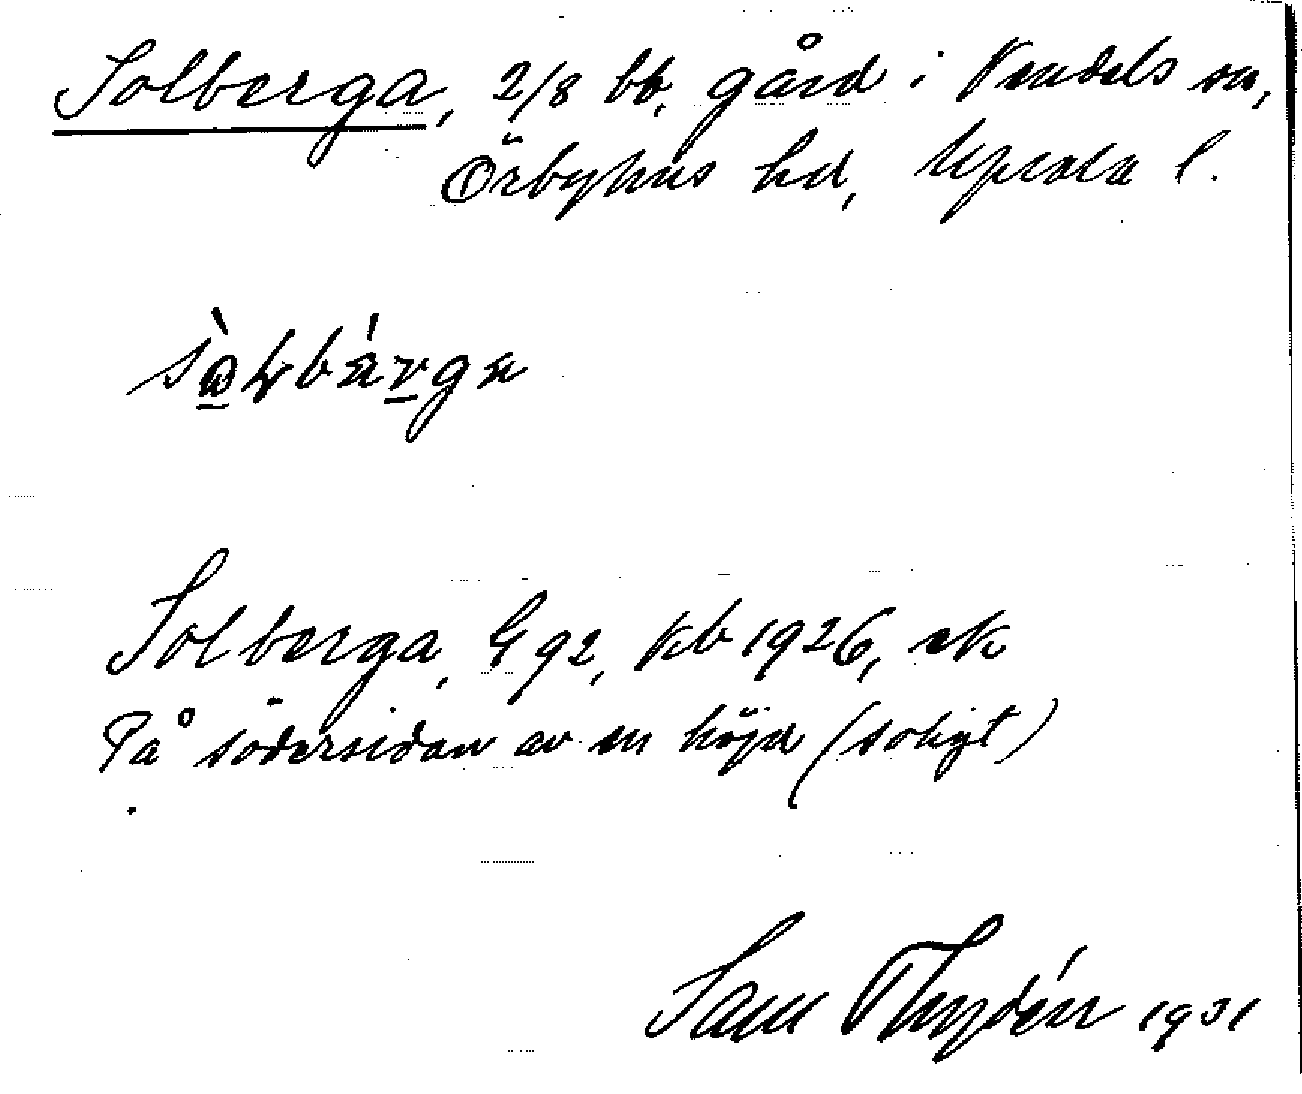 Solberga, 2/8 bb, gård i Vendels sn,
Örbyhus hd, Upsala l.
Solberga, G 92, Kb 1926, ek
På södersidan av en höjd (soligt)
Sam Thydén 1931